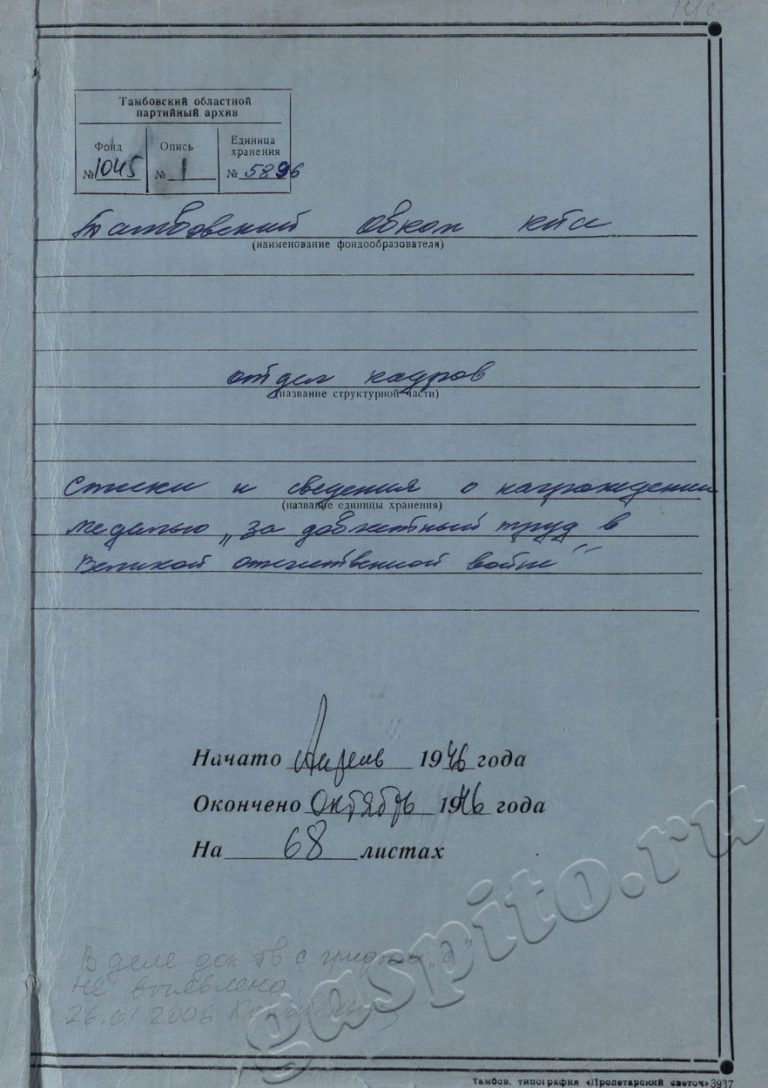 Тамбовский областной
партийный архив
Фонд Опись Единица хранения
№ 1045 № 1 № 5896
Тамбовский Обком КПСС
(наименование фондообразователя)
отдел кадров
(название структурной части)
Списки и сведения о награждении
(название единицы хранения)
медалью „за доблестный труд в
Великой отечественной войне"
Начато Апрель 1946 года
Окончено Октябрь 1946 года
На 68 листах
В деле док-тов с грифом
не выявлено.
26.01.2006
gaspito.ru
Тамбов, типография «Пролетарский светоч» 3937